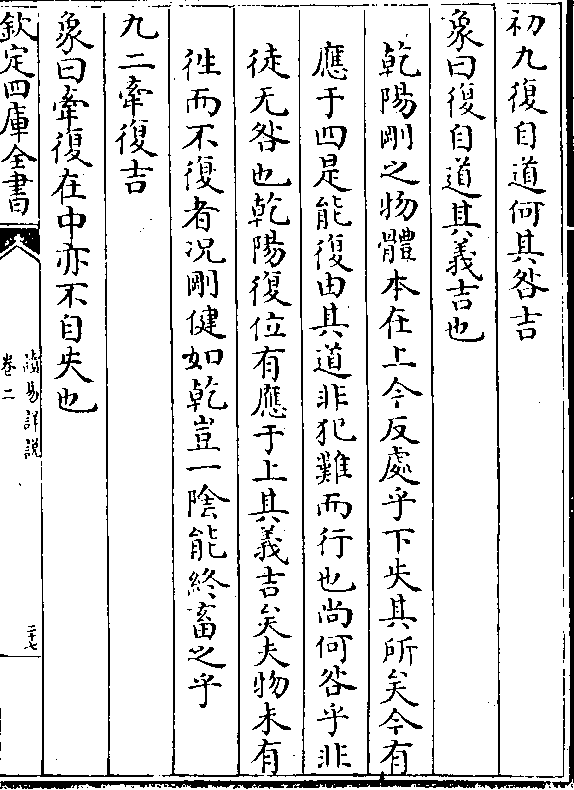 初九復自道何其咎吉
象曰復自道其義吉也
乾陽剛之物體本在上今反處乎下失其所矣今有
應于四是能復由其道非犯難而行也尚何咎乎非
徒无咎也乾陽復位有應于上其義吉矣夫物未有
徃而不復者况剛健如乾豈一陰能終畜之乎
九二牽復吉
象曰牽復在中亦不自失也
欽定四庫全書
讀易詳説
卷二
二十七